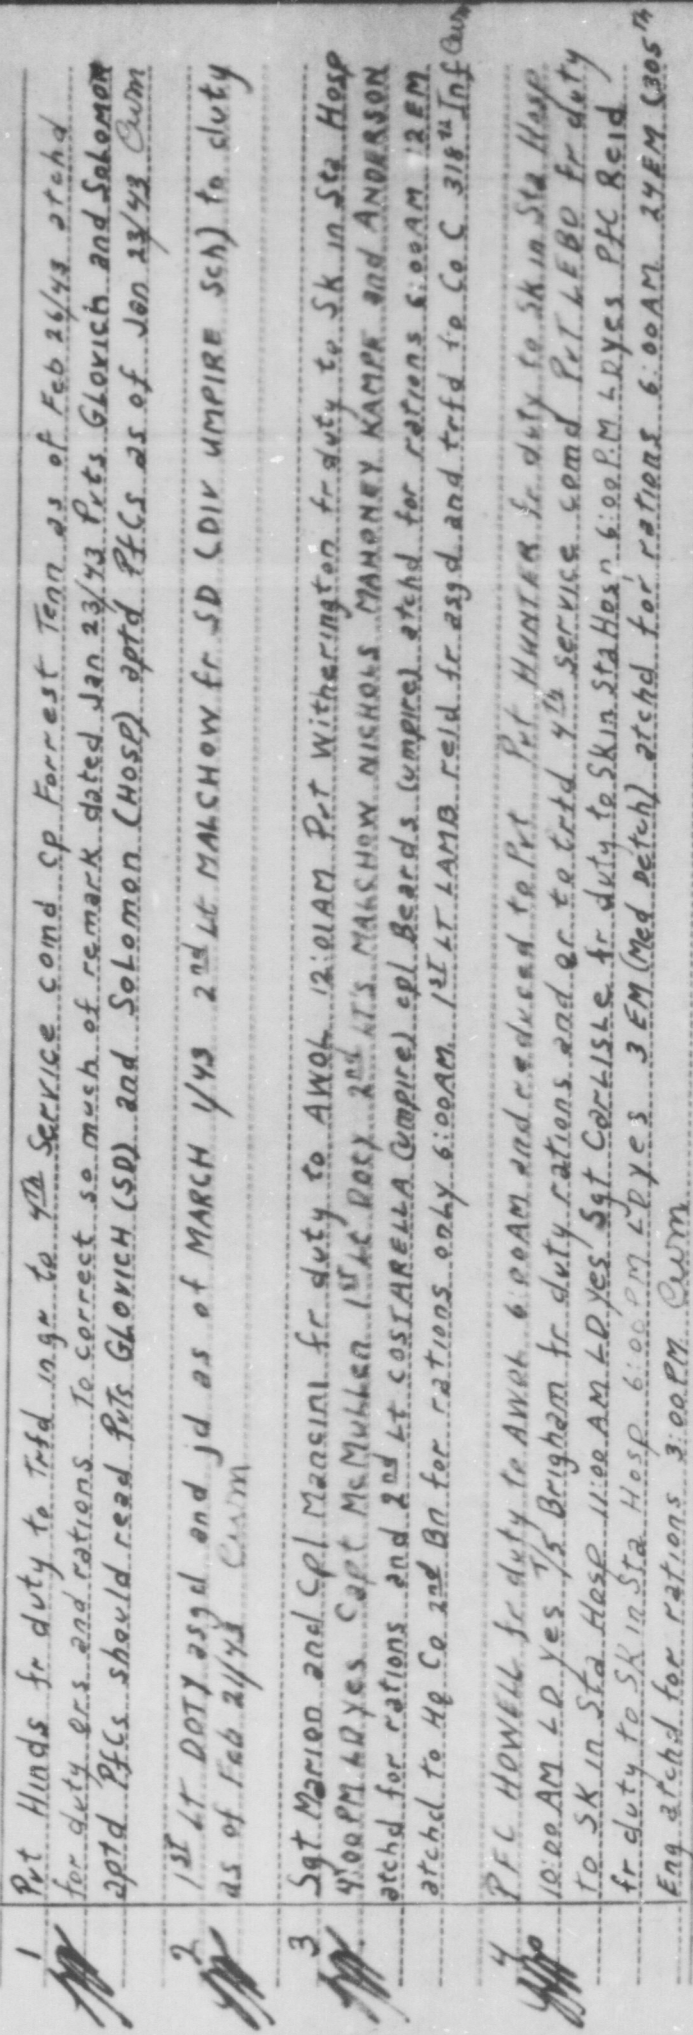 1 Pvt Hinds fr duty to Trfd in gr to 4th Service comd Cp Forrest Tenn as of Feb 26/43 atchd
for duty qrs and rations To correct so much of remark dated Jan 23/43 Pvts Glovich and Solomon
aptd Pfcs should read Pvts Glovich (SD) and Solomon (Hosp) aptd Pfcs as of Jan 23/43 Cwm
2 1st Lt DOTY asgd and jd as of MARCH 1/43 2nd Lt MALCHOW fr SD (DIV UMPIRE Sch) to duty
as of Feb 21/43 Cwm
3 Sgt Marion and Cpl Mancini fr duty to AWOL 12:01AM Pvt Witherington fr duty to SK in Sta Hosp
4:00PM LD yes Capt McMullen 1st Lt Doty 2nd LT'S MALCHOW NICHOLS MAHONEY KAMPF and ANDERSON
atchd for rations and 2nd Lt COSTARELLA (umpire) cpl Beards (umpire) atchd for rations 6:00AM 12 EM
atchd to Hq Co 2nd Bn for rations only 6:00AM 1ST LT LAMB reld fr asgd and trfd to Co C 318th Inf Cwm
4 PFC HOWELL fr duty to AWOL 6:00AM and reduced to Pvt Pvt HUNTER fr duty to SK in Sta Hosp
10:00 AM LD yes T/5 Brigham fr duty rations and qr to trfd 4th service comd Pvt LEBO fr duty
to SK in Sta Hosp 11:00 AM LD yes Sgt CARLISLE fr duty to SK in Sta Hosp 6:00 P.M LD yes Pfc Reid
fr duty to SK in Sta Hosp 6:00 PM LD yes 3 EM (Med Detch) atchd for rations 6:00AM 24 EM (305th
Eng atchd for rations 3:00PM Cwm